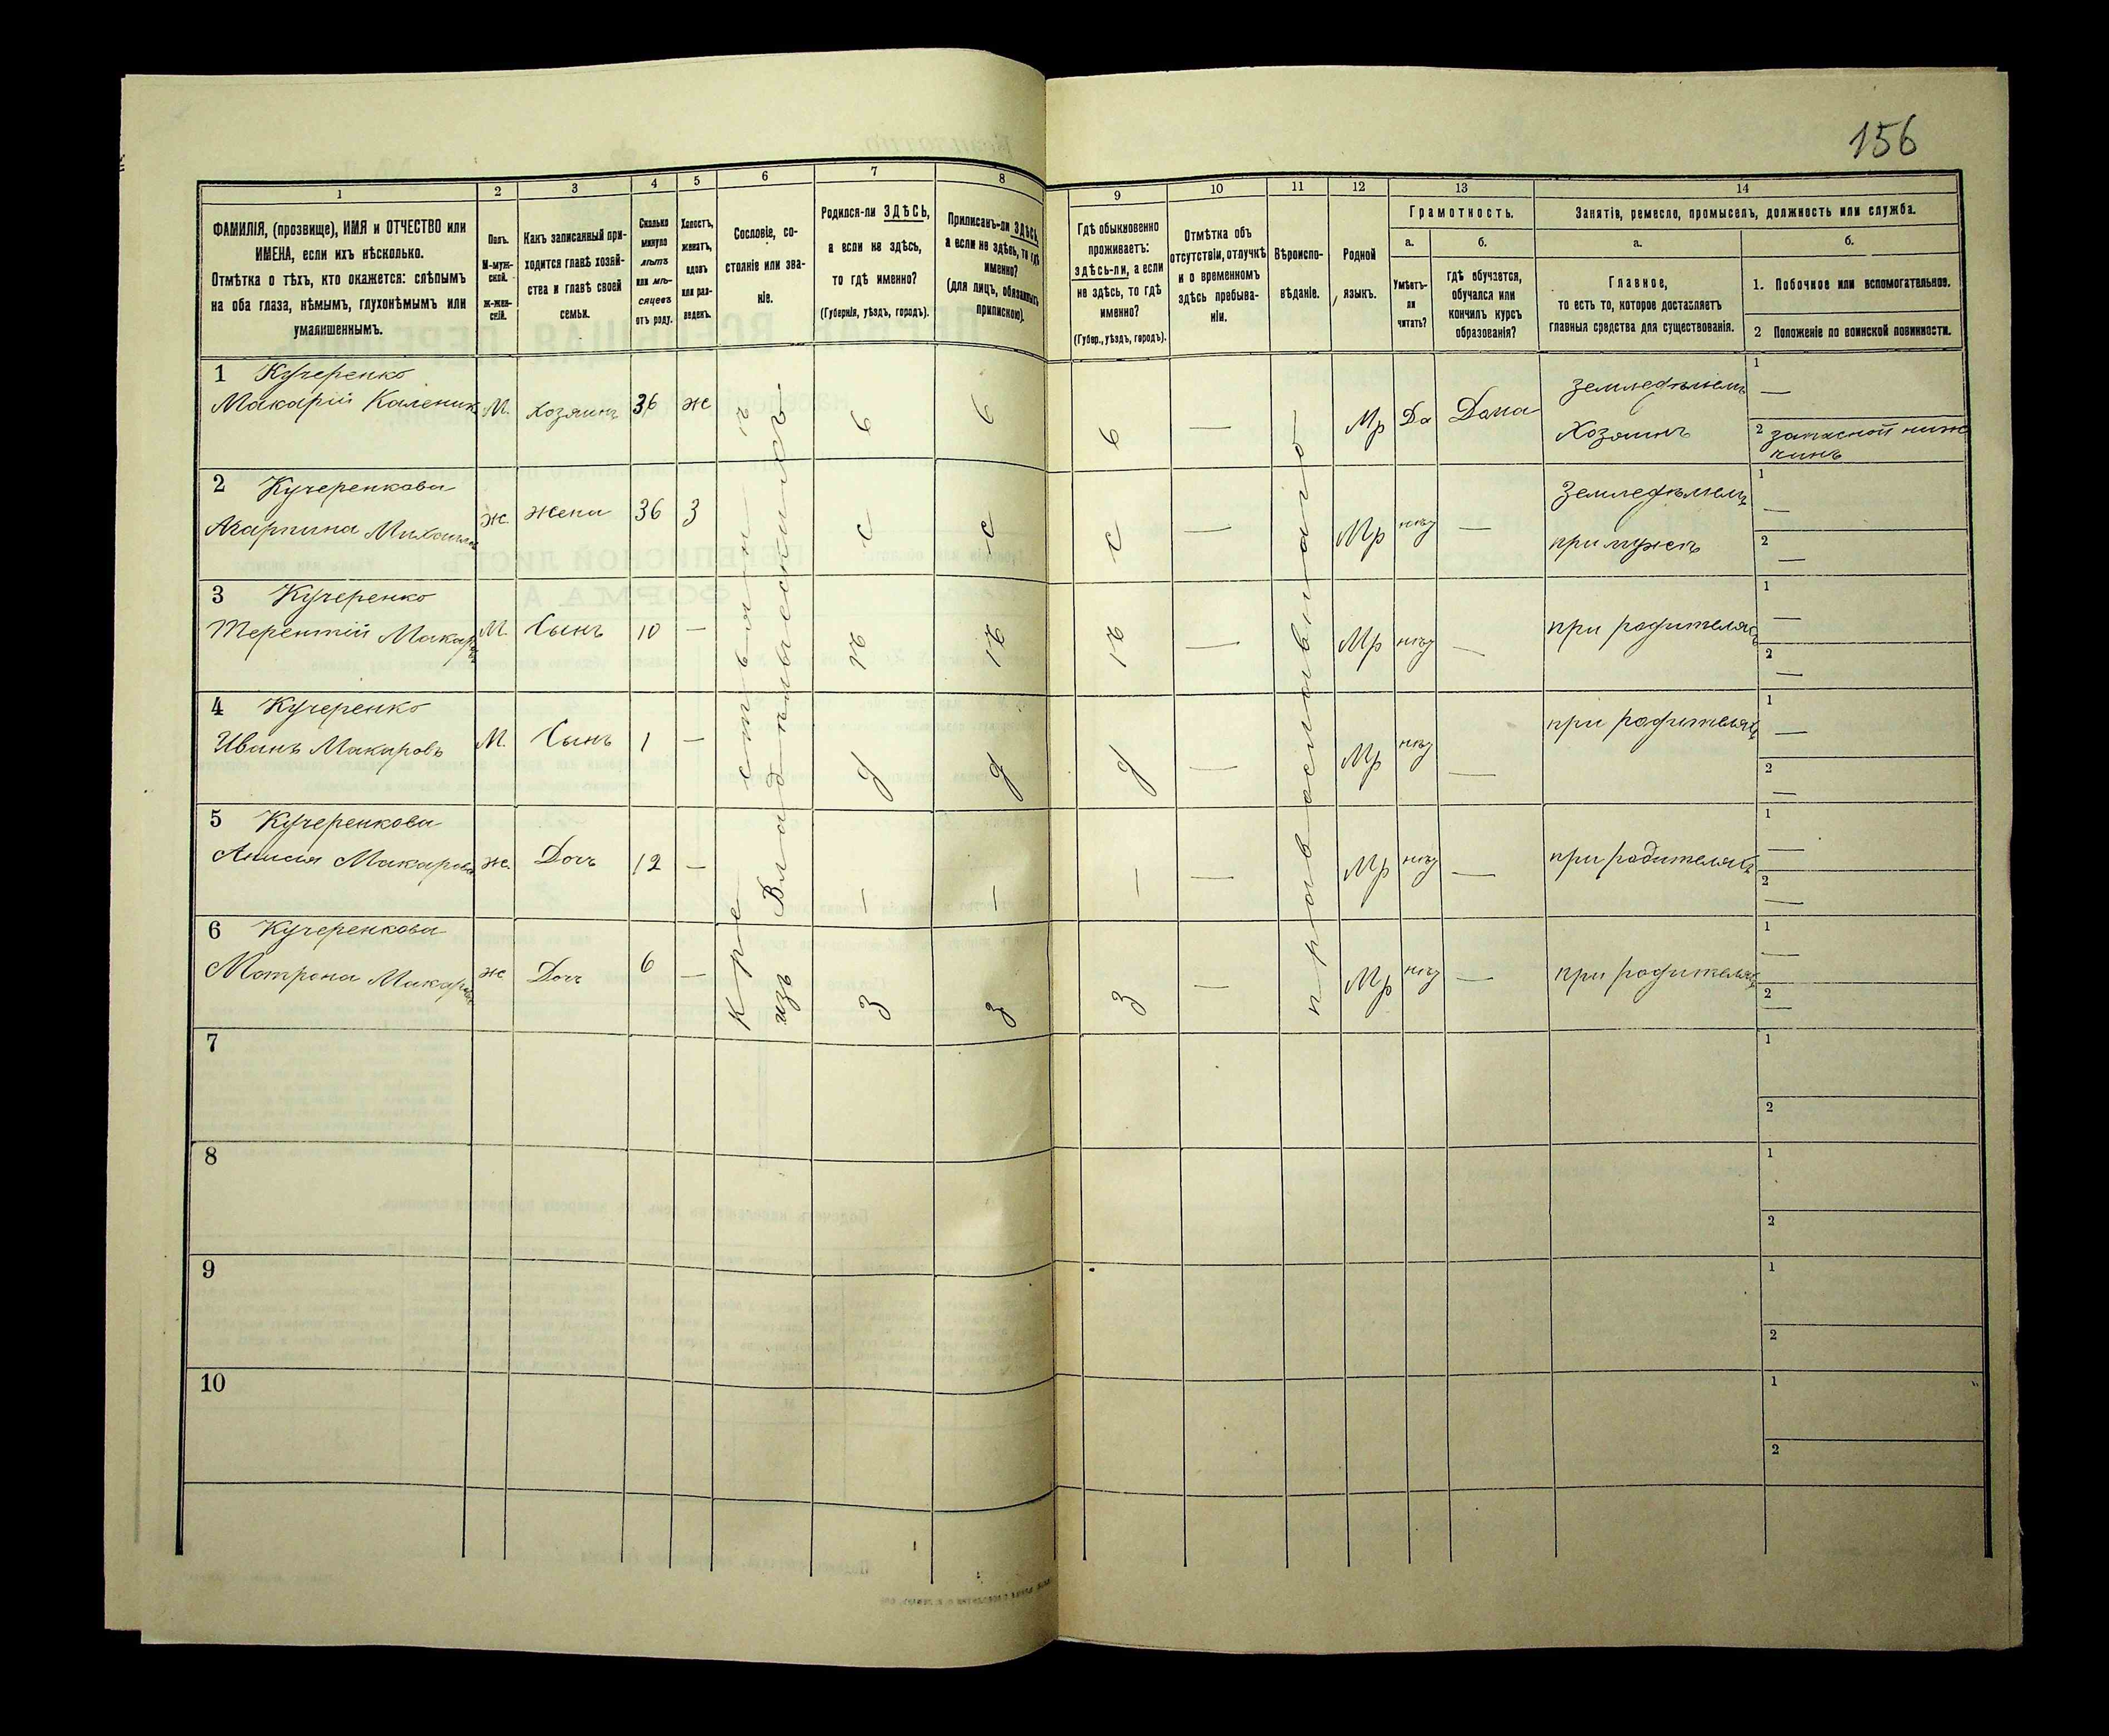 156
1
2
3
4
5
6
7
8
9
10
11
12
13
14
ФАМИЛІЯ, (прозвище), ИМЯ и ОТЧЕСТВО или
ИМЕНА, если ихъ нѣсколько.
Отмѣтка о тѣхъ, кто окажется: слѣпымъ
на оба глаза, нѣмымъ, глухонѣмымъ или
умалишеннымъ.
Полъ.
М-муж-
ской.
Ж-жен-
скій.
Какъ записанный при-
ходится главѣ хозяй-
ства и главѣ своей
семьи.
Сколько
минуло
лѣтъ
или мѣ-
сяцевъ
отъ роду.
Холостъ,
женатъ,
вдовъ
или раз-
веденъ.
Сословіе, со-
стояніе или зва-
ніе.
Родился-ли ЗДѢСЬ,
а если не здѣсь,
то гдѣ именно?
(Губернія, уѣздъ, городъ).
Приписанъ-ли ЗДѢСЬ,
а если не здѣсь, то гдѣ
именно?
(для лицъ, обязанныхъ
припискою).
Гдѣ обыкновенно
проживаетъ:
ЗДѢСЬ-ЛИ, а если
не здѣсь, то гдѣ
именно?
(Губер., уѣздъ, городъ).
Отмѣтка объ
отсутствіи, отлучкѣ
и о временномъ
здѣсь пребыва-
ніи.
Вѣроиспо-
вѣданіе.
Родной
языкъ.
Грамотность.
а.
б.
Умѣетъ-
ли
читать?
гдѣ обучается,
обучался или
кончилъ курсъ
образованія?
Занятіе, ремесло, промыселъ, должность или служба.
а.
б.
Главное,
то есть то, которое доставляетъ
главныя средства для существованія.
1. Побочное или вспомогательное.
2 Положеніе по воинской повинности.
1 Кучеренко
Макарій Каленик М. Хозяинъ 36 ж Мр Да Дома
земледѣлецъ
Хозяинъ
1 —
2 запасной ниж
чинъ
2 Кучеренкова
Агарпина ж. жена 36 З — Мр нѣт —
Земледѣлецъ
при мужѣ
1 —
2 —
3 Кучеренко
Терентій Макаров М. Сынъ 10 — — Мр нѣт — при родителяхъ
1 —
2 —
4 Кучеренко
Иванъ Макаровъ М. Сынъ 1 — — Мр нѣт — при родителяхъ
1 —
2 —
5 Кучеренкова
Анисия Макарова ж. Дочь 12 — — Мр нѣт — при родителяхъ
1 —
2 —
6 Кучеренкова
Матрона Макарова ж Дочь 6 — — Мр нѣт — при родителяхъ
1 —
2 —
Крестьянинъ
изъ Владѣльческихъ
З — д ѣ с ь
З — д ѣ с ь
З — д ѣ с ь
православнаго
7
1
2
8
1
2
9
1
2
10
1
2